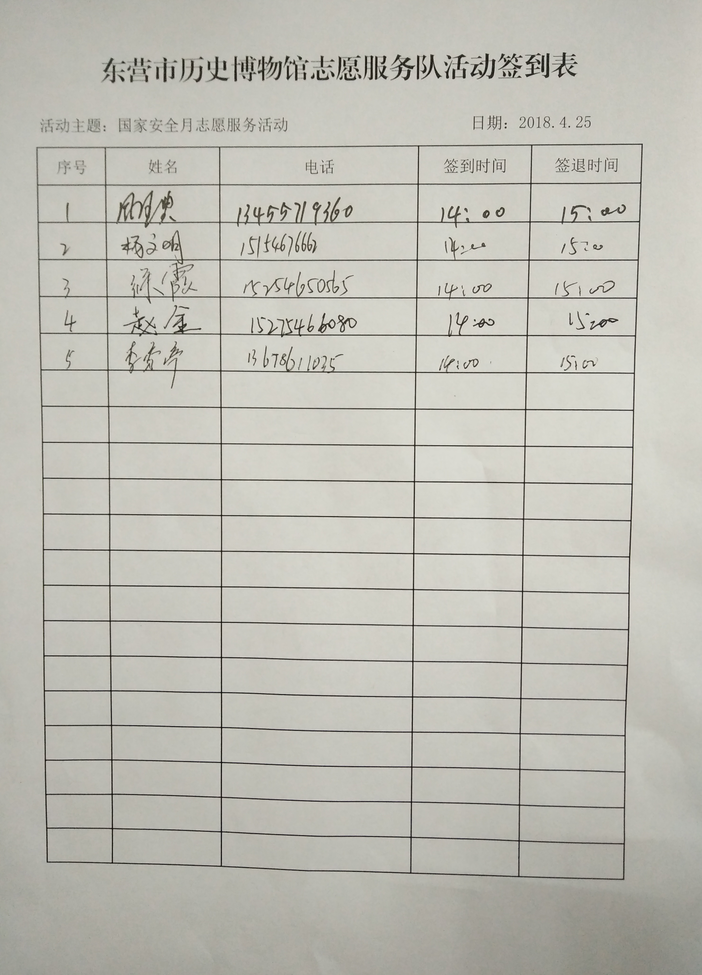 东营市历史博物馆志愿服务队活动签到表
活动主题：国家安全月志愿服务活动 日期：2018.4.25
序号 姓名 电话 签到时间 签退时间
1 13455719360 14:00 15:00
2 杨文明 14:00 15:00
3 徐霞 15254650565 14:00 15:00
4 赵金 15275466080 14:00 15:00
5 13678611035 14:00 15:00